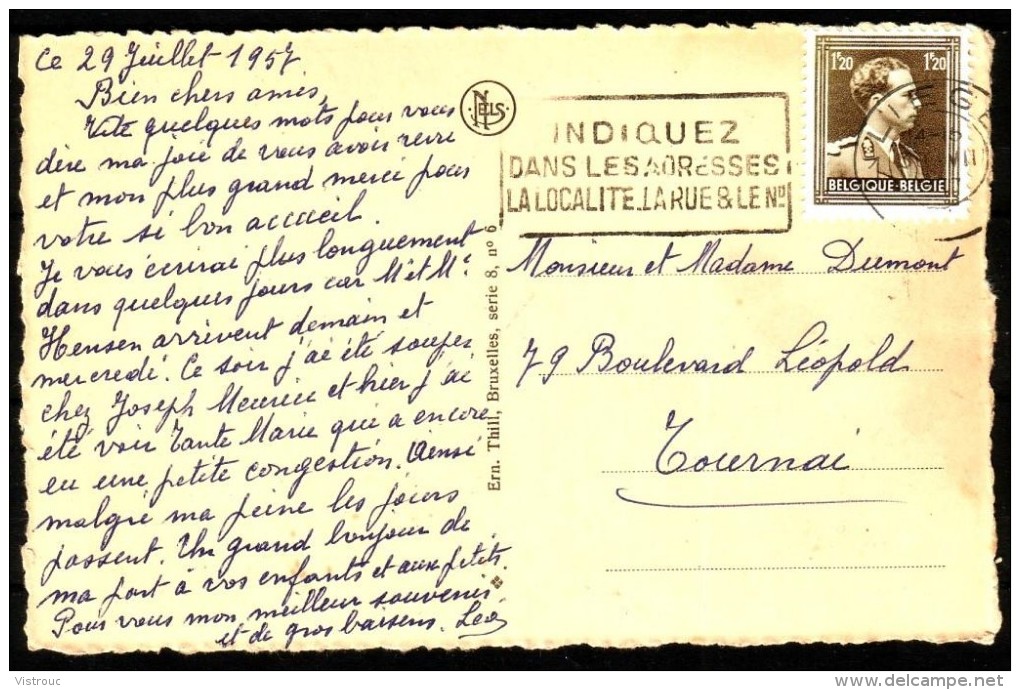 Ce 29 Juillet 1957
Bien chers amis,
Vite quelques mots pour vous
dire ma joie de vous avoir revu
et mon plus grand merci pour
votre si bon accueil.
Je vous écrirai plus longuement
dans quelques jours car Mr et Me
Hensen arrivent demain et
mercredi. Ce soir j'ai été souper
chez Joseph Meurice et hier j'ai
été voir Tante Marie qui a encore
eu une petite congestion. Ainsi
malgré ma peine les jours
passent. Un grand bonjour de
ma part à vos enfants et aux petits.
Pour vous mon meilleur souvenir
et de gros baisers. Léa
NELS
Ern. Thill, Bruxelles, serie 8, n° 6
INDIQUEZ
DANS LES ADRESSES
LA LOCALITE. LA RUE & LE No
1F20 1F20
BELGIQUE-BELGIE
Monsieur et Madame Dumont
79 Boulevard Léopold
Tournai
Vistrouc
delcampe.net